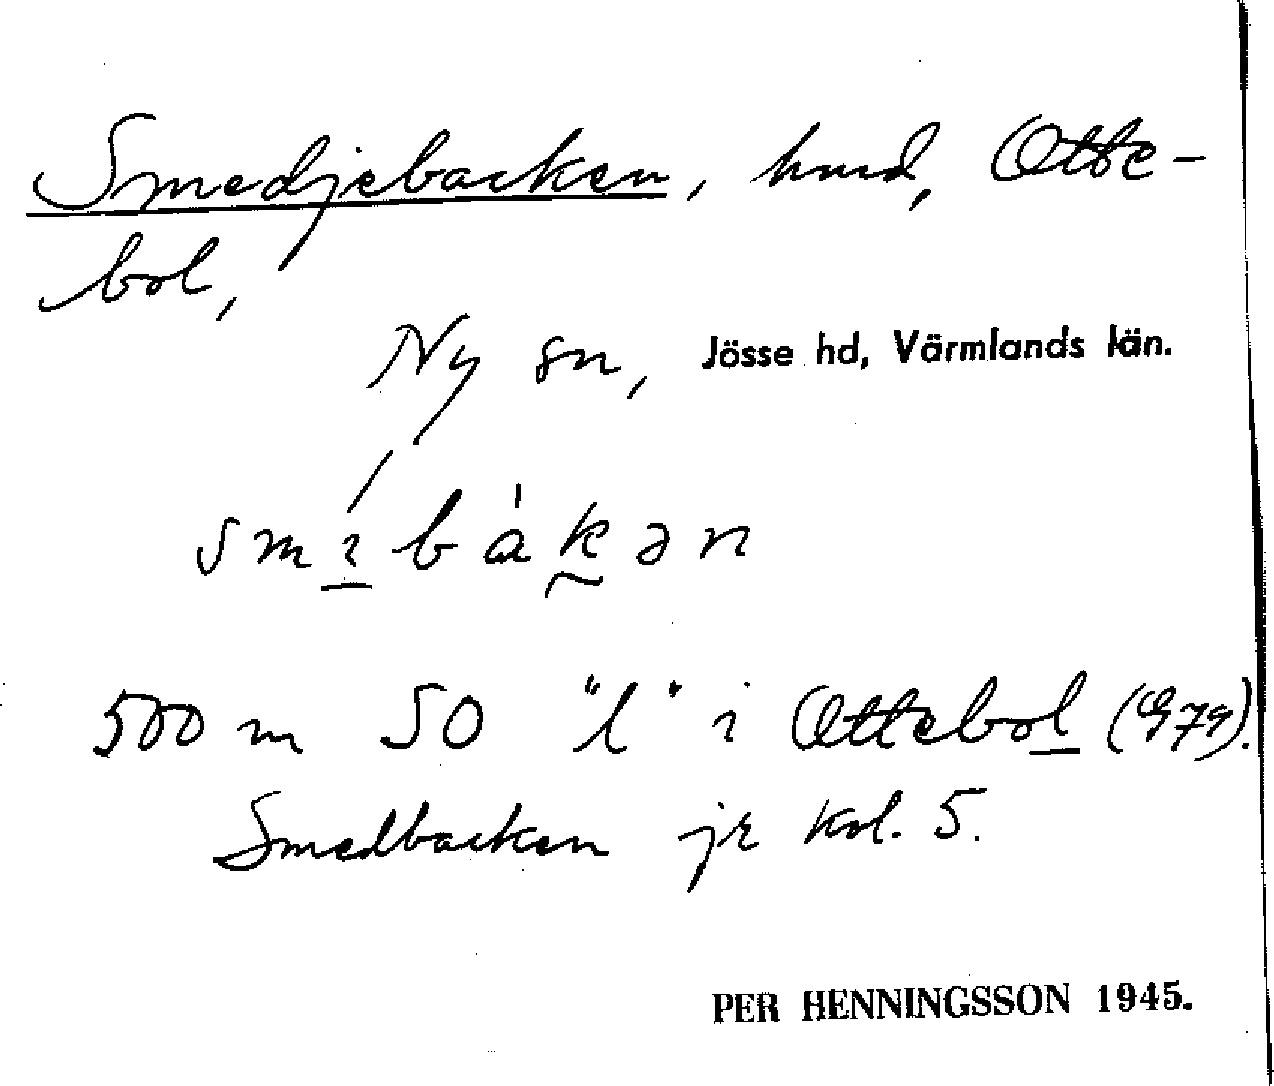 Smedjebacken, hmd, Otte-
bol,
Ny sn, Jösse hd, Värmlands län.
smi̱bákən
500 m SO "l" i Ottebol (979).
Smedbacken jr kol. 5.
PER HENNINGSSON 1945.